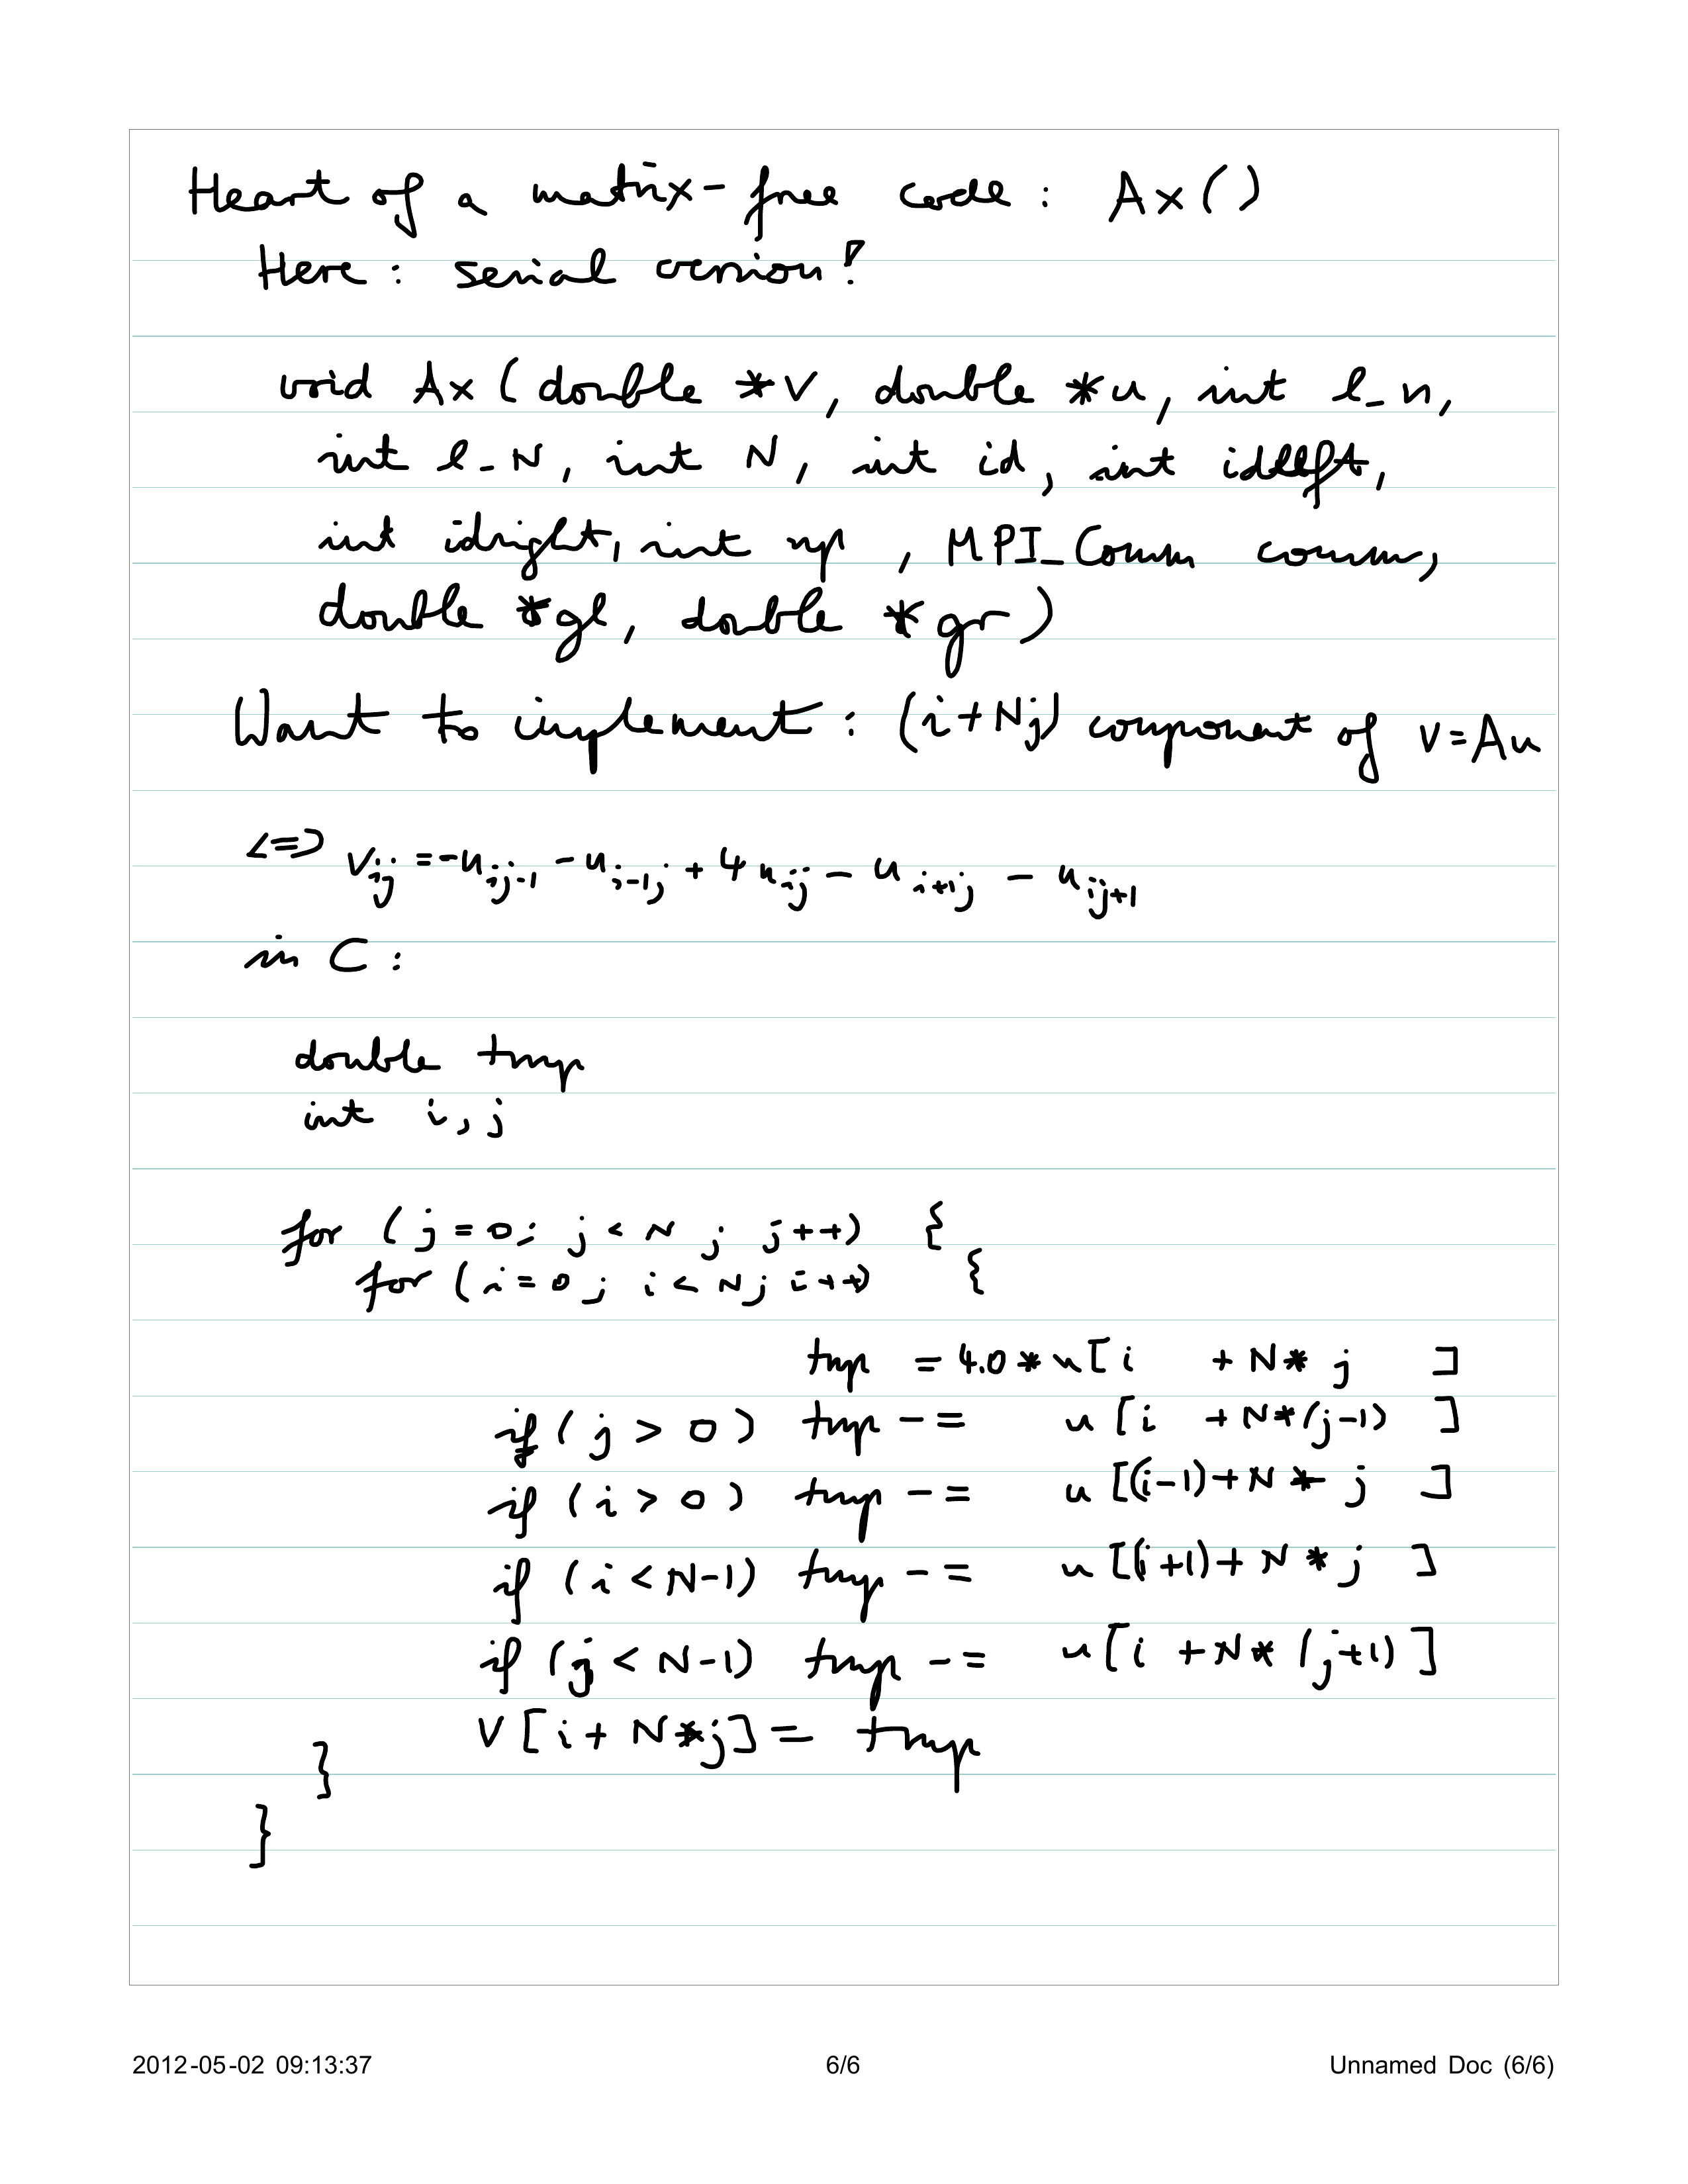 Heart of a matrix-free code: Ax()
Here: serial version!
void Ax (double *v, double *u, int l_n,
int l_N, int N, int id, int idleft,
int idright, int np, MPI_Comm comm,
double *gl, double *gr)
Want to implement: (i+Nj) component of v=Au
<=> v_ij = -u_ij-1 - u_i-1j + 4 u_ij - u_i+1j - u_ij+1
in C:
double tmp
int i, j
for (j=0; j<N; j++) {
for (i=0; i<N; i++) {
tmp = 4.0*u[i + N*j ]
if (j > 0) tmp -= u[i + N*(j-1) ]
if (i > 0) tmp -= u[(i-1)+N*j ]
if (i < N-1) tmp -= u[(i+1)+N*j ]
if (j < N-1) tmp -= u[i +N*(j+1)]
v[i+N*j] = tmp
}
}
2012-05-02 09:13:37 6/6 Unnamed Doc (6/6)